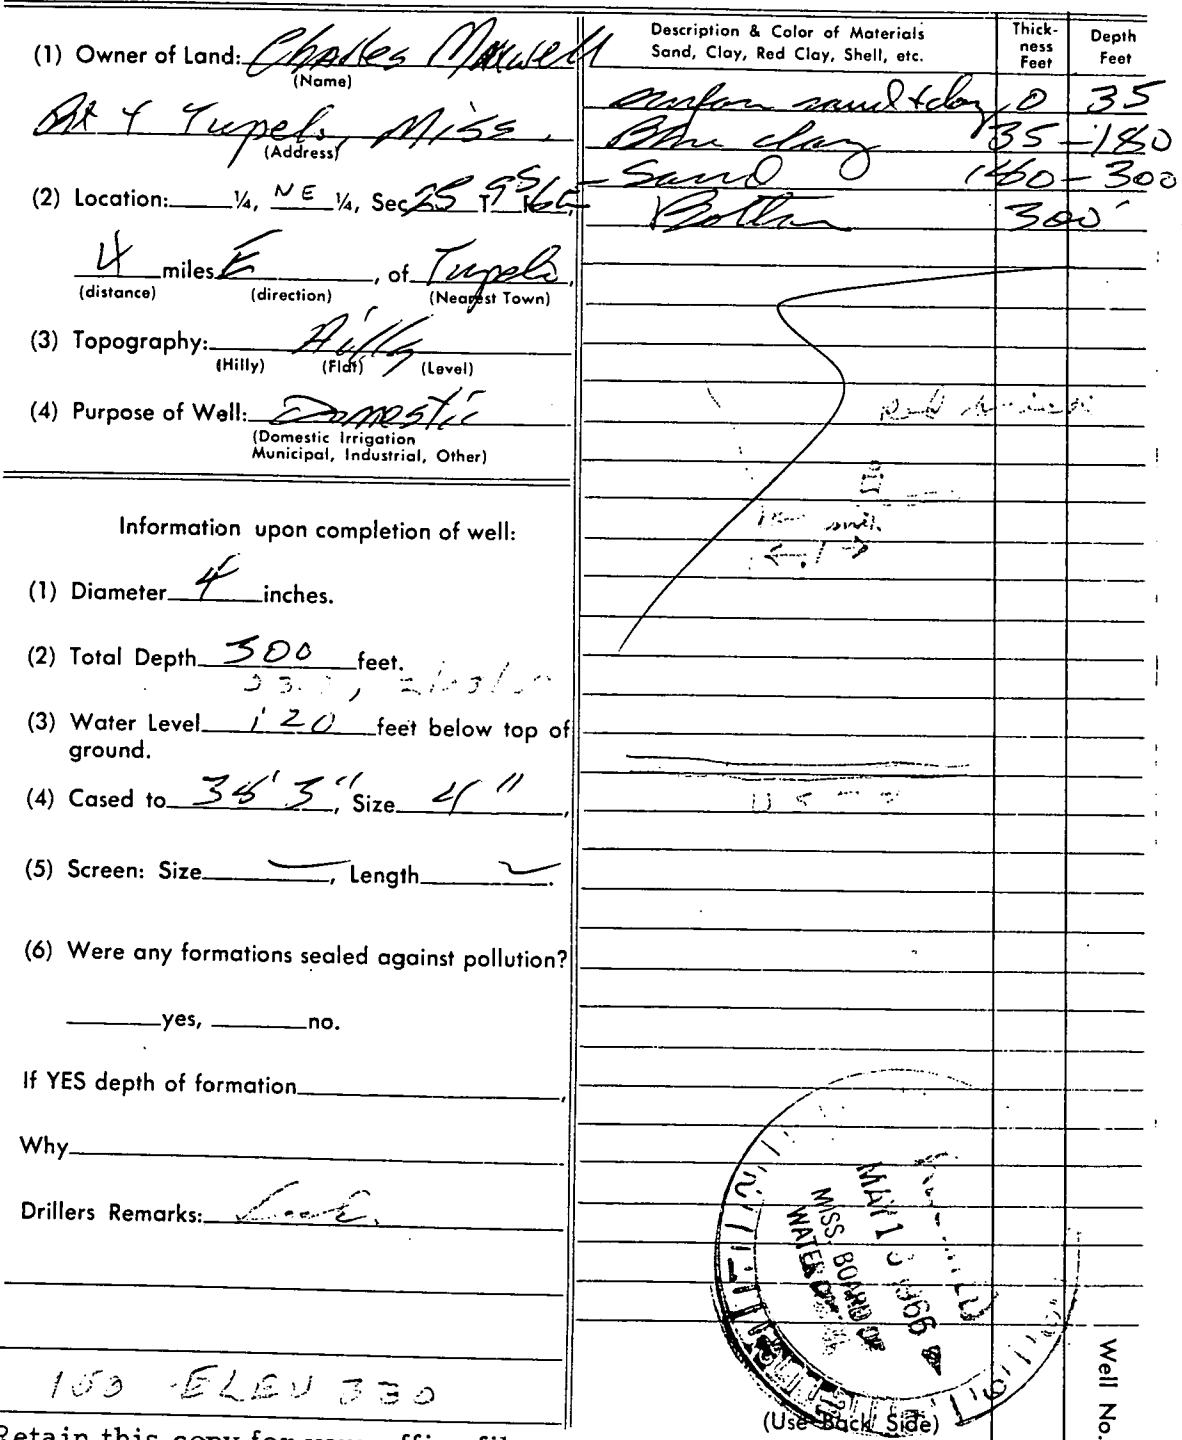 (1) Owner of Land: Charles Maxwell
(Name)
Rt 4 Tupelo, Miss.
(Address)
(2) Location: ¼, NE ¼, Sec 25 T 9S R 6E
4 miles E, of Tupelo,
(distance) (direction) (Nearest Town)
(3) Topography: Hilly
(Hilly) (Flat) (Level)
(4) Purpose of Well: Domestic
(Domestic Irrigation
Municipal, Industrial, Other)
Information upon completion of well:
(1) Diameter 4 inches.
(2) Total Depth 300 feet.
(3) Water Level 120 feet below top of
ground.
(4) Cased to 38' 3", Size 4",
(5) Screen: Size, Length.
(6) Were any formations sealed against pollution?
yes, no.
If YES depth of formation,
Why
Drillers Remarks:
ELEV 330
Retain this copy for your
Description & Color of Materials
Sand, Clay, Red Clay, Shell, etc.
Thick-
ness
Feet
Depth
Feet
surface sand + clay 0 35
Blue clay 35-180
Sand 180-300
Bottom 300'
Red brick
MAY 1 1966
MISS. BOARD OF
WATER
(Use Back Side)
Well No.